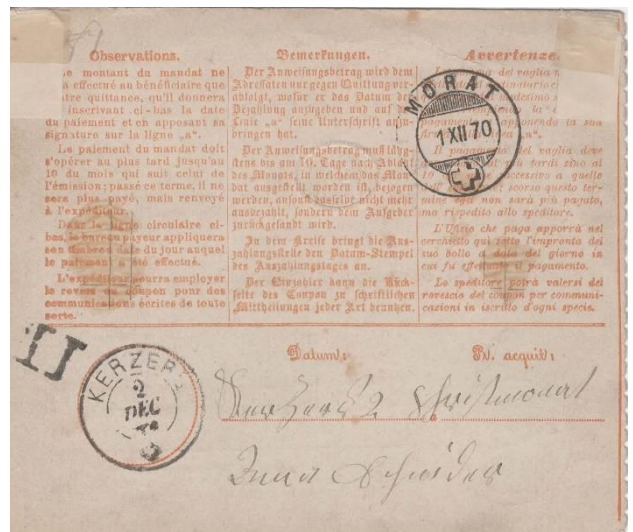 Observations.
e montant du mandat ne
a effectué au bénéficiaire que
tre quittance, qu'il donnera
inscrivant ci-bas la date
du paiement et en apposant sa
signature sur la ligne „a“.
Le paiement du mandat doit
s'opérer au plus tard jusqu'au
10 du mois qui suit celui de
l'émission; passé ce terme, il ne
sera plus payé, mais renvoyé
à l'expéditeur.
Dans le ligne circulaire ci-
bas, le bureau payeur appliquera
son timbre date du jour auquel
le paiement a été effectué.
L'expéditeur pourra employer
le revers du coupon pour des
communications écrites de toute
sorte.
Bemerkungen.
Der Anweisungsbetrag wird dem
Adressaten nur gegen Quittung ver-
abfolgt, wofür er das Datum der
Bezahlung anzugeben und auf der
Linie „a“ seine Unterschrift anzu-
bringen hat.
Der Anweisungsbetrag muß läng-
stens bis am 10. Tage nach Ablauf
des Monats, in welchem das Man-
dat ausgestellt worden ist, bezogen
werden, ansonst dasselbe nicht mehr
ausbezahlt, sondern dem Aufgeber
zurückgesandt wird.
In dem Kreise bringt die Aus-
zahlungsstelle den Datum-Stempel
des Auszahlungstages an.
Der Einzahler kann die Rück-
seite des Coupon zu schriftlichen
Mittheilungen jeder Art benutzen.
Avvertenze.
del vaglia
Il pagamento del vaglia deve
più tardi sino al
10 successivo a quello
scorso questo ter-
mine egli non sarà più pagato,
ma rispedito allo speditore.
L'Ufizio che paga apporrà nel
cerchietto qui sotto l'impronta del
suo bollo a data del giorno in
cui fu effettuato il pagamento.
Lo speditore potrà valersi del
rovescio del coupon per communi-
cazioni in iscritto d'ogni specie.
MORAT
1 XII 70
KERZERS
2
DEC
Datum:
Pr. acquit:
Kerzers 2. Christmonat